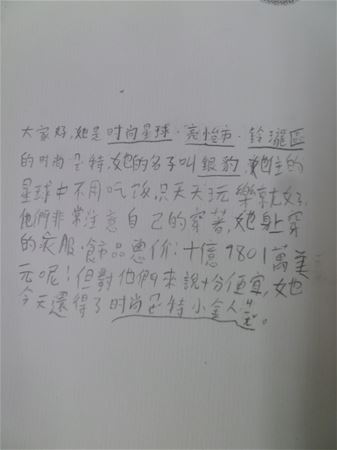 大家好，她是时尚星球·亮怡市·鈴瀧區
的时尚足特，她的名子叫銀豹，她住的
星球中不用吃饭，只天天玩樂就好，
他們非常注意自己的穿著，她身上穿
的衣服·飾品應价：十億9801萬美
元呢！但對他們來說十份便宜，她
今天還得了时尚足特小金人